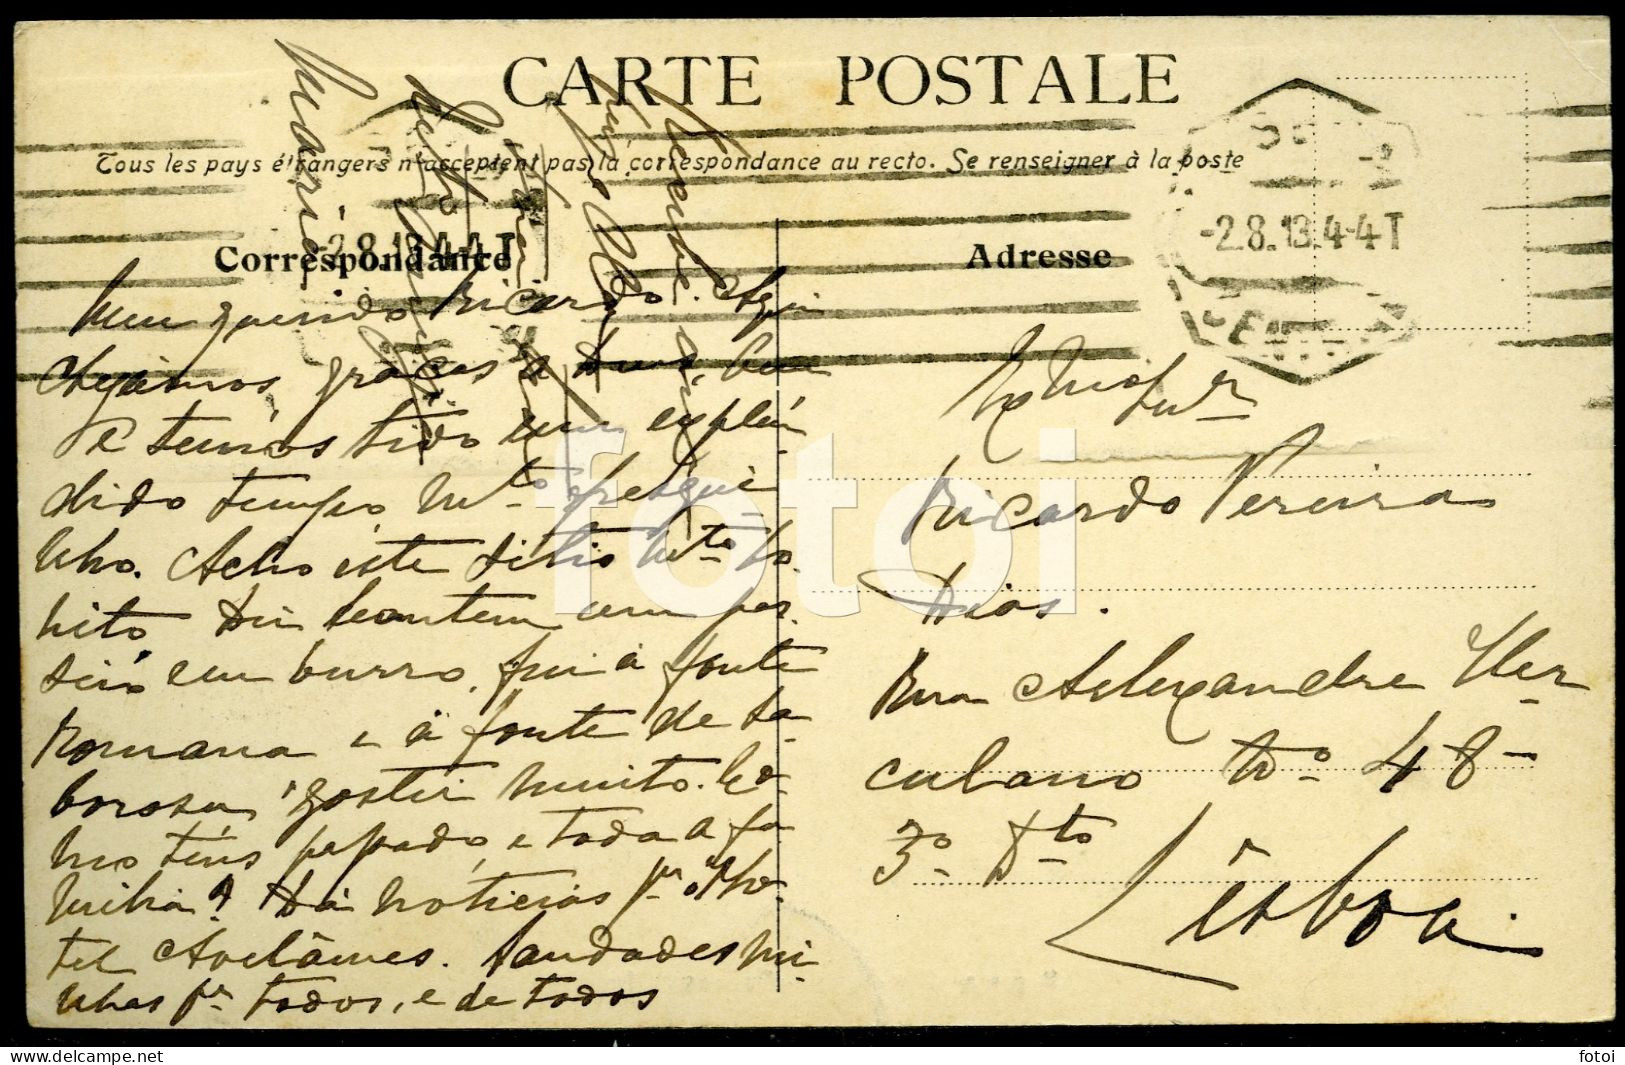 CARTE POSTALE
Tous les pays étrangers n'acceptent pas la correspondance au recto. Se renseigner à la poste
Correspondance
Meu querido Ricardo. Aqui
chegámos, graças a Deus, bem
e temos tido um explên-
dido tempo mto fresqui-
nho. Acho este sitio mto bo-
nito. Dei hontem um pas-
seio em burro, fui á fonte
Romana e á fonte de Sa-
borosa, gostei muito. Co-
mo téns passado, e toda a fa-
milia? Dá nóticias pr o Ho-
tel Avelâmes. Saudades mi-
nhas pr todos, e de todos
Maria
-2.8.13.4-4T
Adresse
-2.8.13.4-4T
Exmo Snr
Ricardo Pereira
Dias.
Rua Alexandre Her-
culano No 48-
3o Dto
Lisboa.
fotoi
fotoi
Delcampe.net